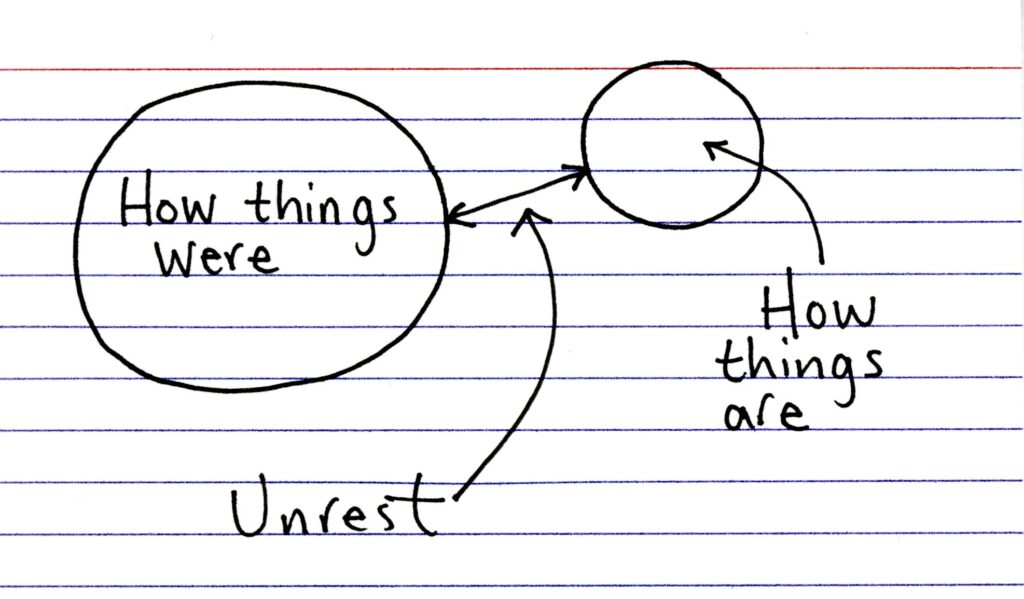 How things
were
How
things
are
Unrest